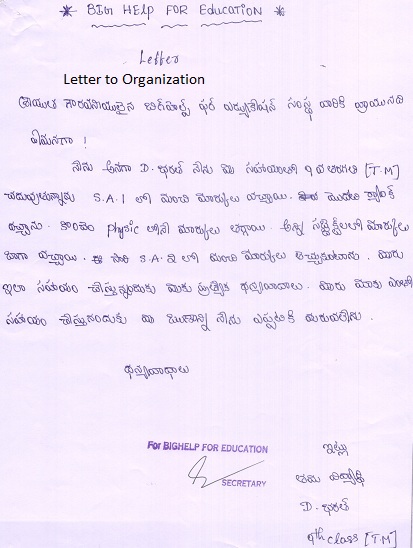 * BIG HELP FOR Education *
Letter
Letter to Organization
శ్రీయుత గౌరవనీయులైన బిగ్‌హెల్ప్ ఫర్ ఎడ్యుకేషన్ సంస్థ వారికి వ్రాయునది
ఏమనగా !
నేను అనగా D. భరత్ నేను మీ సహాయంతో 9 వ తరగతి [T.M]
చదువుతున్నాను S.A.1 లో మంచి మార్కులు వచ్చాయి. మొదటి ర్యాంక్
వచ్చాను. కొంచెం physic లోని మార్కులు తగ్గాయి. అన్ని సబ్జెక్ట్‌లలో మార్కులు
బాగా వచ్చాయి. ఈ సారి S.A.2 లో మంచి మార్కులు తెచ్చుకుంటాను. మీరు
ఇలా సహాయం చేస్తున్నందుకు మీకు ప్రత్యేక ధన్యవాదాలు. మీరు మాకు ఎంతో
సహాయం చేస్తున్నందుకు మీ ఋణాన్ని నేను ఎప్పటికి మరువలేను.
ధన్యవాధాలు
For BIGHELP FOR EDUCATION
SECRETARY
ఇట్లు
తమ విద్యార్థి
D. భరత్
9th class [T.M]